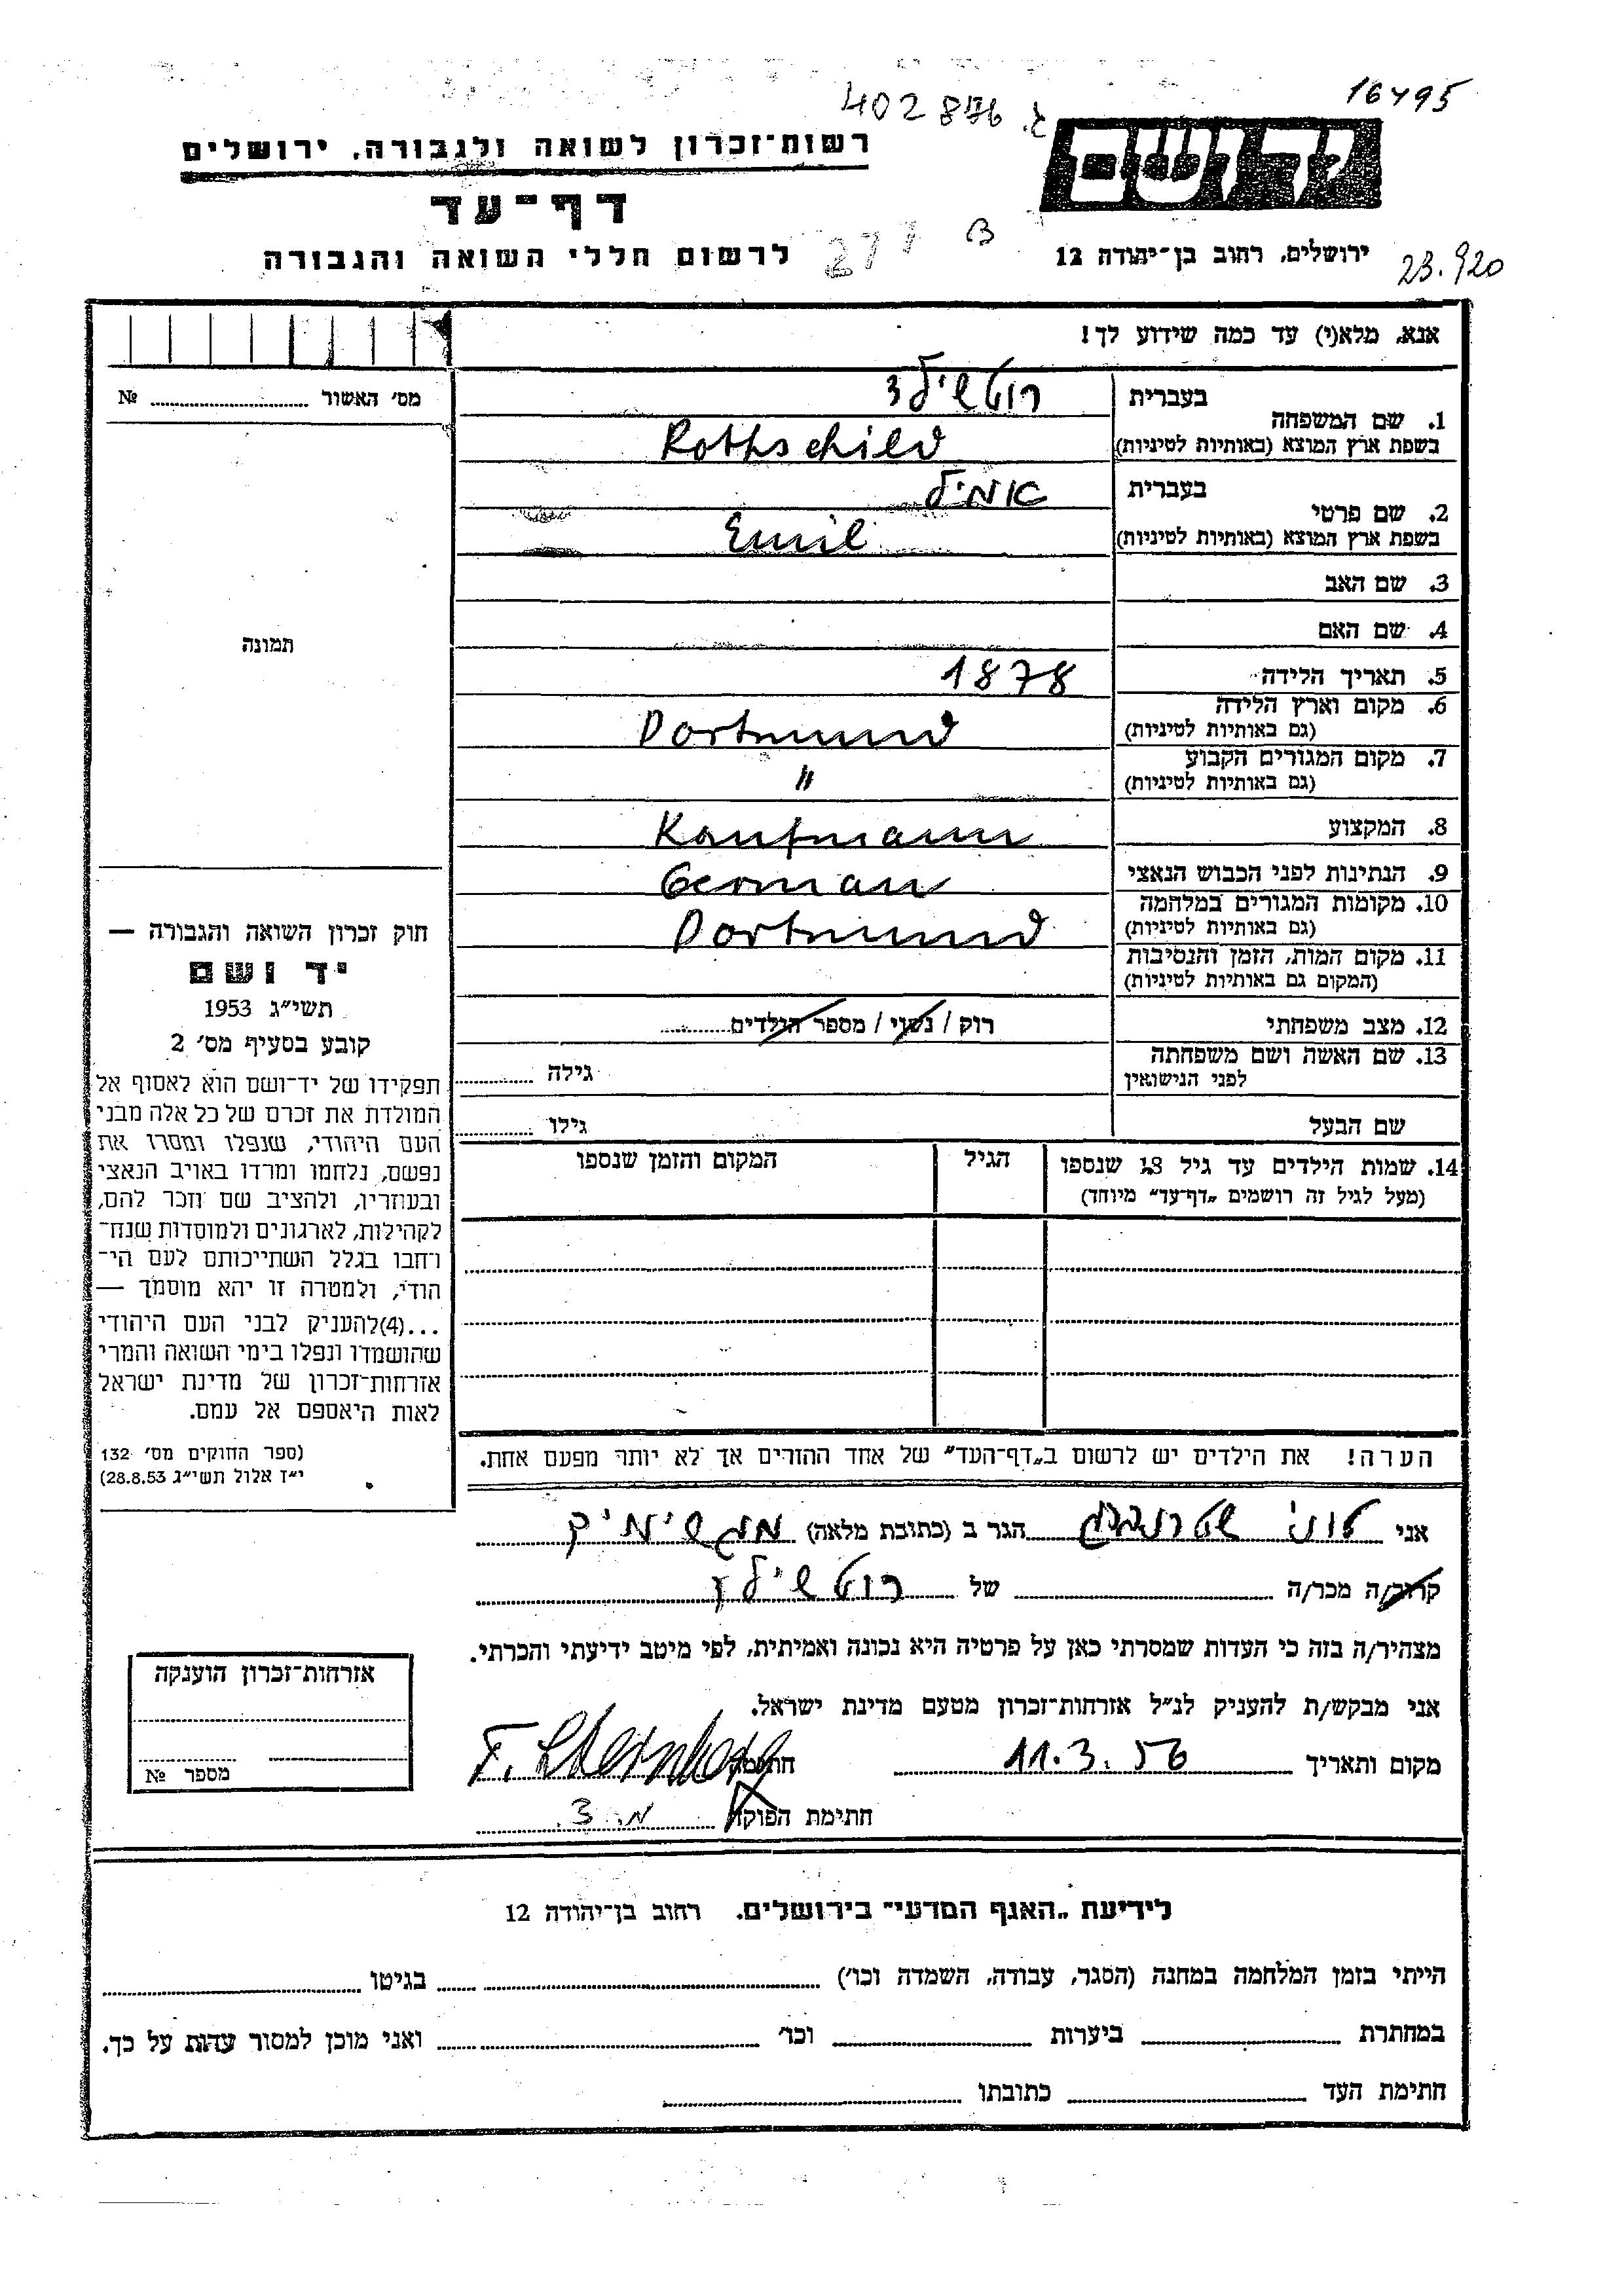 402876 ג.
16495
רשות־זכרון לשואה ולגבורה, ירושלים
ידושם
דף־עד
לרשום חללי השואה והגבורה
277 B
ירושלים, רחוב בן־יהודה 12
23.920
אנא, מלא(י) עד כמה שידוע לך!
מס׳ האשור № 
תמונה
1. שם המשפחה בעברית רוטשילד
בשפת ארץ המוצא (באותיות לטיניות) Rothschild
2. שם פרטי בעברית אמיל
בשפת ארץ המוצא (באותיות לטיניות) Emil
3. שם האב
4. שם האם
5. תאריך הלידה 1878
6. מקום וארץ הלידה
(גם באותיות לטיניות) Dortmund
7. מקום המגורים הקבוע
(גם באותיות לטיניות) "
8. המקצוע Kaufmann
9. הנתינות לפני הכבוש הנאצי German
10. מקומות המגורים במלחמה
(גם באותיות לטיניות) Dortmund
11. מקום המות, הזמן והנסיבות
(המקום גם באותיות לטיניות)
12. מצב משפחתי רוק / נשוי / מספר הילדים
13. שם האשה ושם משפחתה
לפני הנישואין גילה
שם הבעל גילו
14. שמות הילדים עד גיל 18 שנספו הגיל המקום והזמן שנספו
(מעל לגיל זה רושמים „דף־עד״ מיוחד)
הערה! את הילדים יש לרשום ב„דף־העד״ של אחד ההורים אך לא יותר מפעם אחת.
חוק זכרון השואה והגבורה —
יד ושם
תשי״ג 1953
קובע בסעיף מס׳ 2
תפקידו של יד־ושם הוא לאסוף אל
המולדת את זכרם של כל אלה מבני
העם היהודי, שנפלו ומסרו את
נפשם, נלחמו ומרדו באויב הנאצי
ובעוזריו, ולהציב שם וזכר להם,
לקהילות, לארגונים ולמוסדות שנח־
רחבו בגלל השתייכותם לעם הי־
הודי, ולמטרה זו יהא מוסמך —
...(4)להעניק לבני העם היהודי
שהושמדו ונפלו בימי השואה והמרי
אזרחות־זכרון של מדינת ישראל
לאות היאספם אל עמם.
(ספר החוקים מס׳ 132
י״ז אלול תשי״ג 28.8.53)
אני טוני שטרנברג הגר ב (כתובת מלאה) מגשימים
קרוב/ה מכר/ה של רוטשילד
מצהיר/ה בזה כי העדות שמסרתי כאן על פרטיה היא נכונה ואמיתית, לפי מיטב ידיעתי והכרתי.
אני מבקש/ת להעניק לנ״ל אזרחות־זכרון מטעם מדינת ישראל.
מקום ותאריך 11.3.56 חתימה T. Sternberg
חתימת הפוקד מ. 3.
אזרחות־זכרון הוענקה
מספר №
לידיעת „האגף המדעי״ בירושלים, רחוב בן־יהודה 12
הייתי בזמן המלחמה במחנה (הסגר, עבודה, השמדה וכו׳) בגיטו
במחתרת ביערות וכו׳ ואני מוכן למסור עדות על כך.
חתימת העד כתובתו